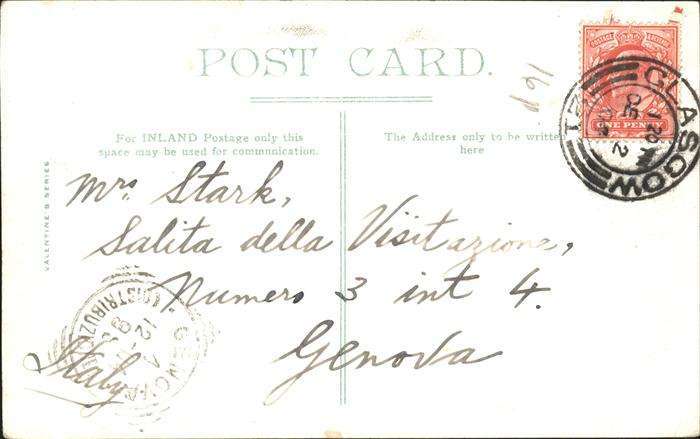 POST CARD.
16/1
For INLAND Postage only this
space may be used for communication.
The Address only to be written
here
VALENTINE'S SERIES
Mrs Stark,
Salita della Visitazione,
Numero 3 int 4.
Genova
Italy
ONE PENNY
GLASGOW
GENOVA